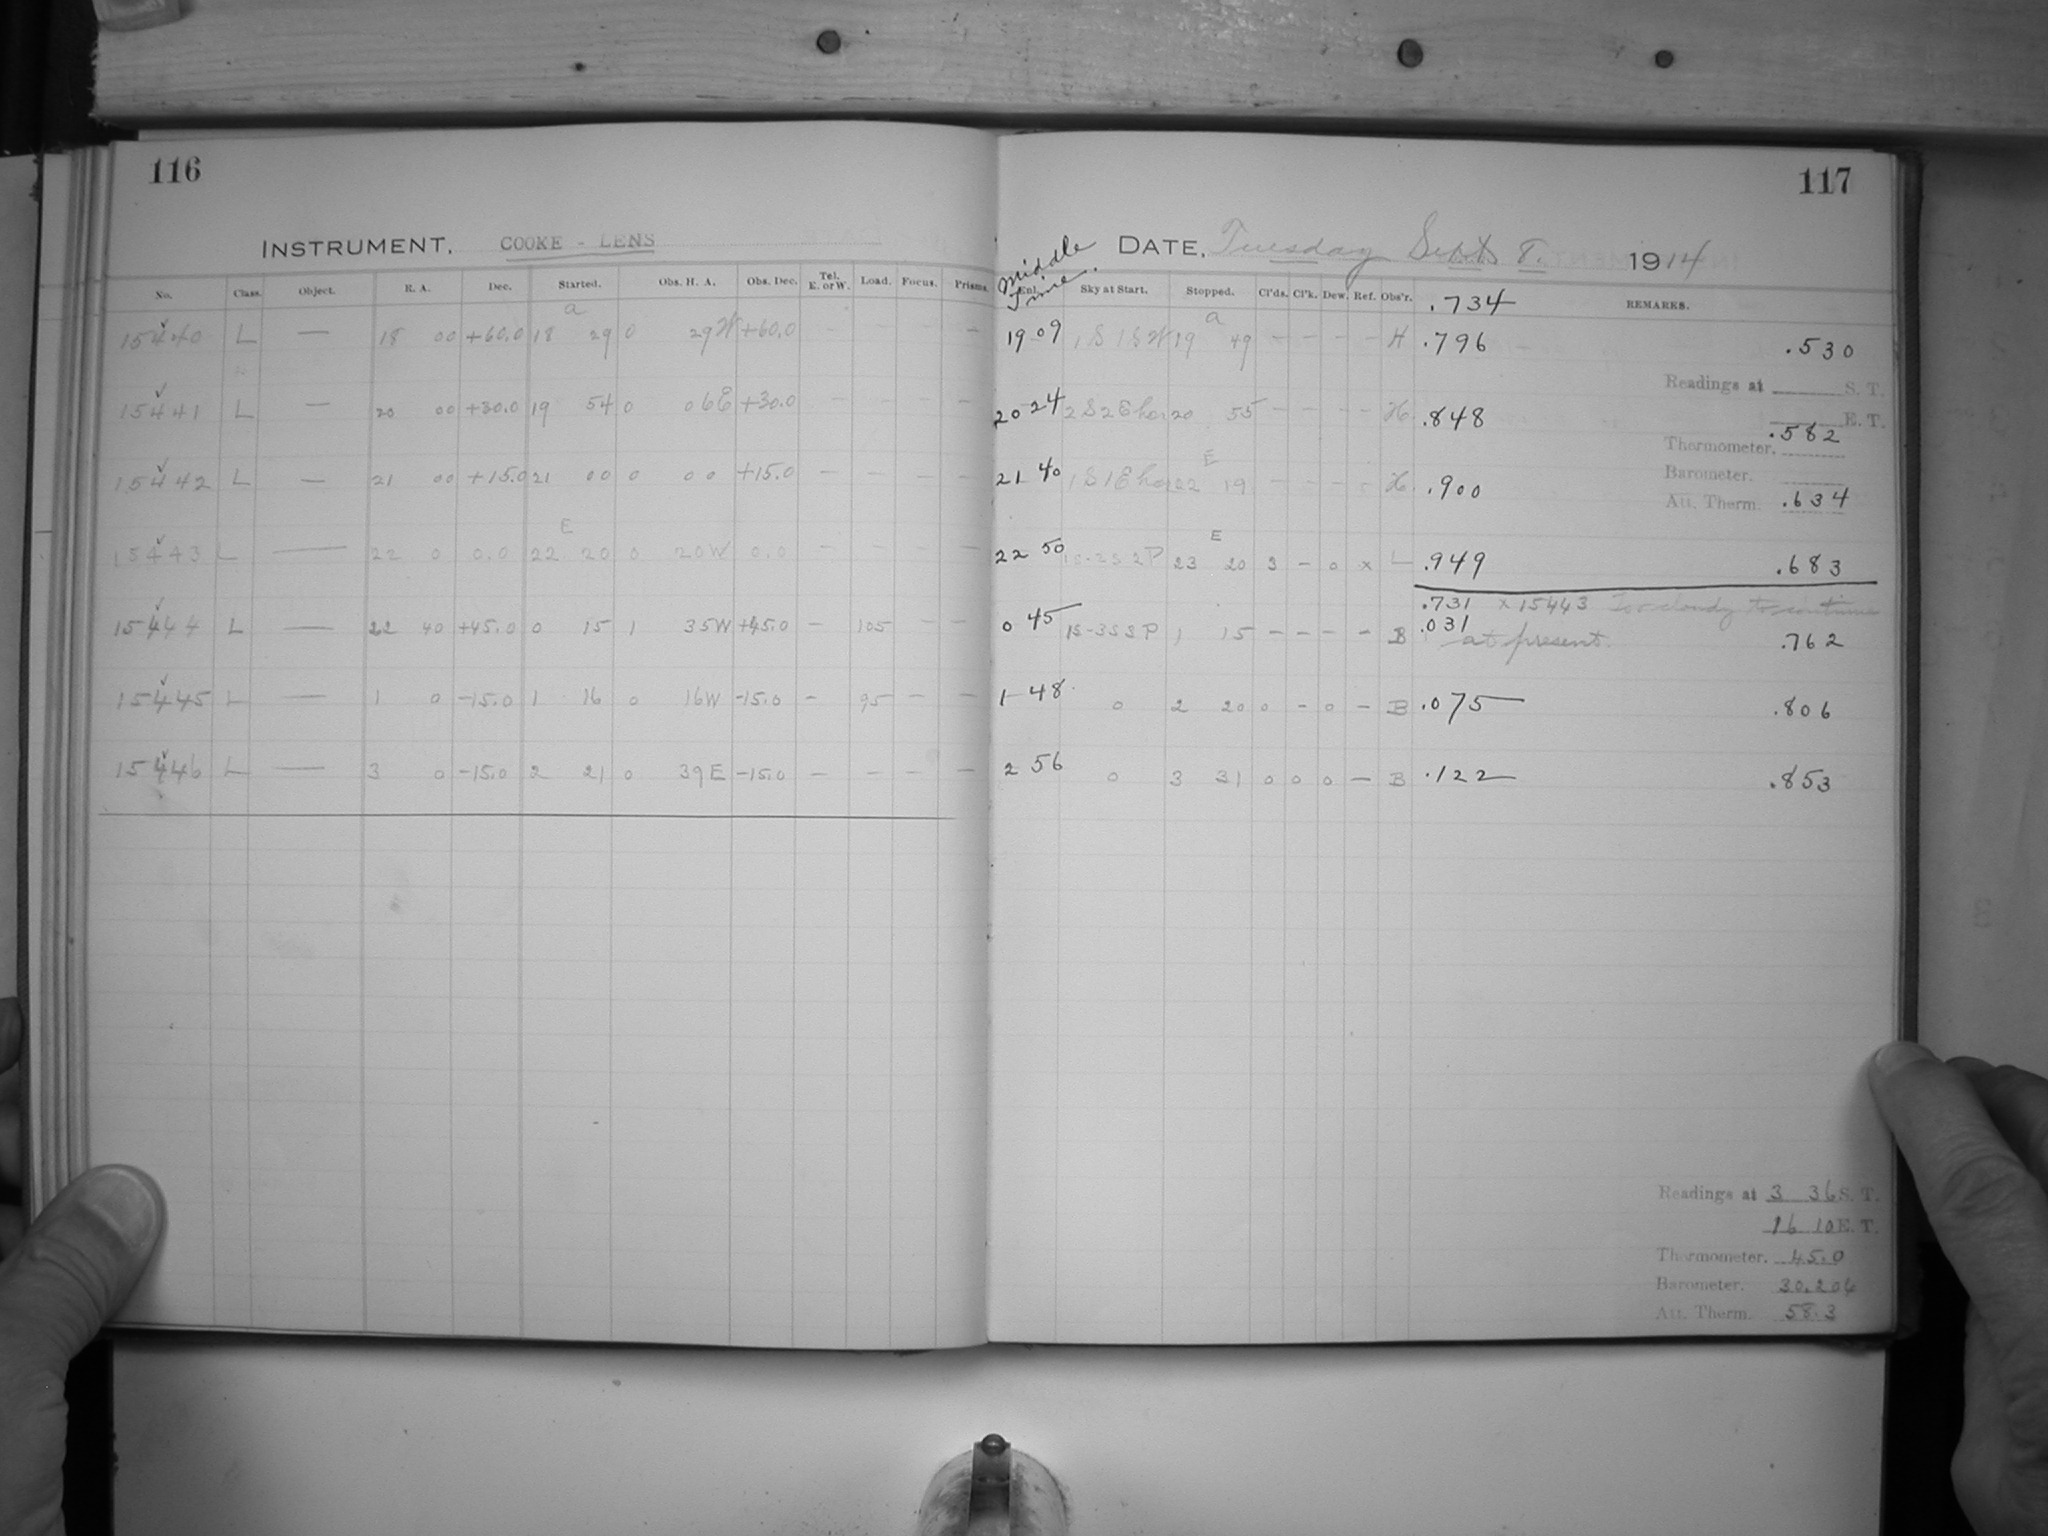 116
INSTRUMENT. COOKE - LENS
No. Class. Object. R. A. Dec. Started. Obs. H. A. Obs. Dec. Tel. E. or W. Load. Focus. Prisms.
a
15440 L — 18 00 +60.0 18 29 0 29W +60.0 —
15441 L — 20 00 +30.0 19 54 0 06E +30.0 — — — —
15442 L — 21 00 +15.0 21 00 0 00 +15.0 — — — —
E
15443 L — 22 0 0.0 22 20 0 20W 0.0 — — — —
15444 L — 22 40 +45.0 0 15 1 35W +45.0 — 105 — —
15445 L — 1 0 -15.0 1 16 0 16W -15.0 — 95 — —
15446 L — 3 0 -15.0 2 21 0 39E -15.0 — — — —
117
DATE, Tuesday Sept. 8. 1914
Middle Time.
Sky at Start. Stopped. Cl'ds. Cl'k. Dew. Ref. Obs'r. .734 REMARKS.
a
19 09 1S1SW 19 49 — — — — H .796 .530
Readings at S. T.
20 24 2S2Ehor 20 55 — — — — H .848 E. T.
.582
Thermometer.
E
21 40 1S1Ehor 22 19 — — — — H .900
Barometer.
Att. Therm. .634
E
22 50 1S-2S2P 23 20 3 — 0 x L .949 .683
.731 x 15443 Too cloudy to continue
0 45 1S-3S3P 1 15 — — — — B .031 at present. .762
1 48 0 2 20 0 — 0 — B .075 .806
2 56 0 3 31 0 0 0 — B .122 .853
Readings at 3 36 S. T.
16 10 E. T.
Thermometer. 45.0
Barometer. 30.204
Att. Therm. 58.3